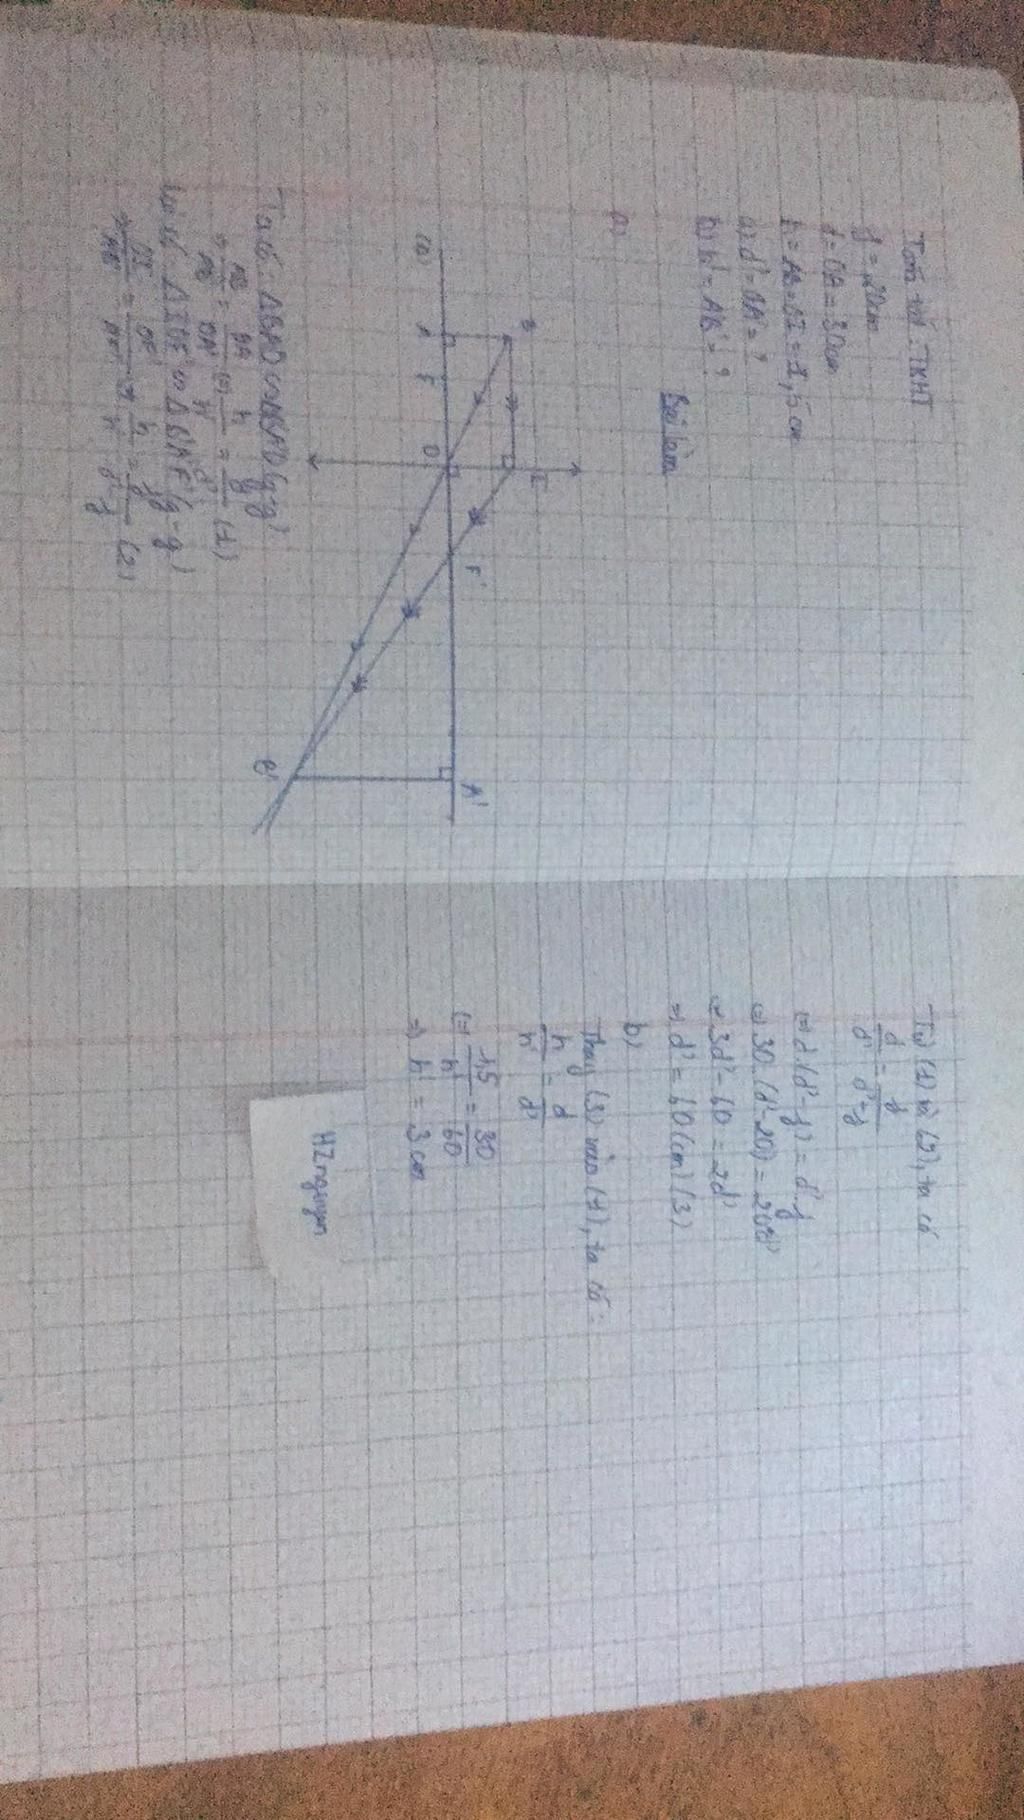 Tóm tắt: TKHT
f = 20cm
d = OA = 30cm
h = AB = OI = 1,5 cm
a) d' = OA' = ?
b) h' = A'B' = ?
Bài làm
a)
B I
(Δ) A F O F' A'
B'
Ta có: ΔBAO ∽ ΔB'A'O (g-g)
⇒ AB/A'B' = OA/OA' ⇔ h/h' = d/d' (1)
ΔIOF' ∽ ΔB'A'F' (g-g)
⇒ OI/A'B' = OF'/A'F' ⇔ h/h' = f/d'-f (2)
Từ (1) và (2), ta có
d/d' = f/d'-f
⇔ d.(d'-f) = d'.f
⇔ 30.(d'-20) = 20d'
⇔ 3d'-60 = 2d'
⇒ d' = 60(cm) (3)
b)
Thay (3) vào (1), ta có:
h/h' = d/d'
⇔ 1,5/h' = 30/60
⇒ h' = 3cm
HZnguyen